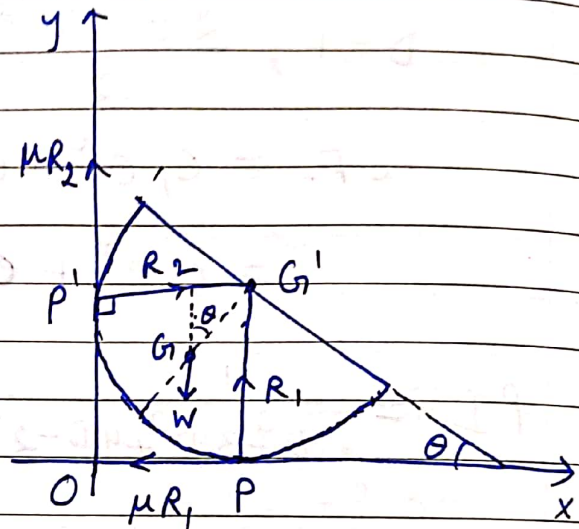 y
μR₂
P' R₂ G'
θ
G
R₁
W
θ
O μR₁ P x